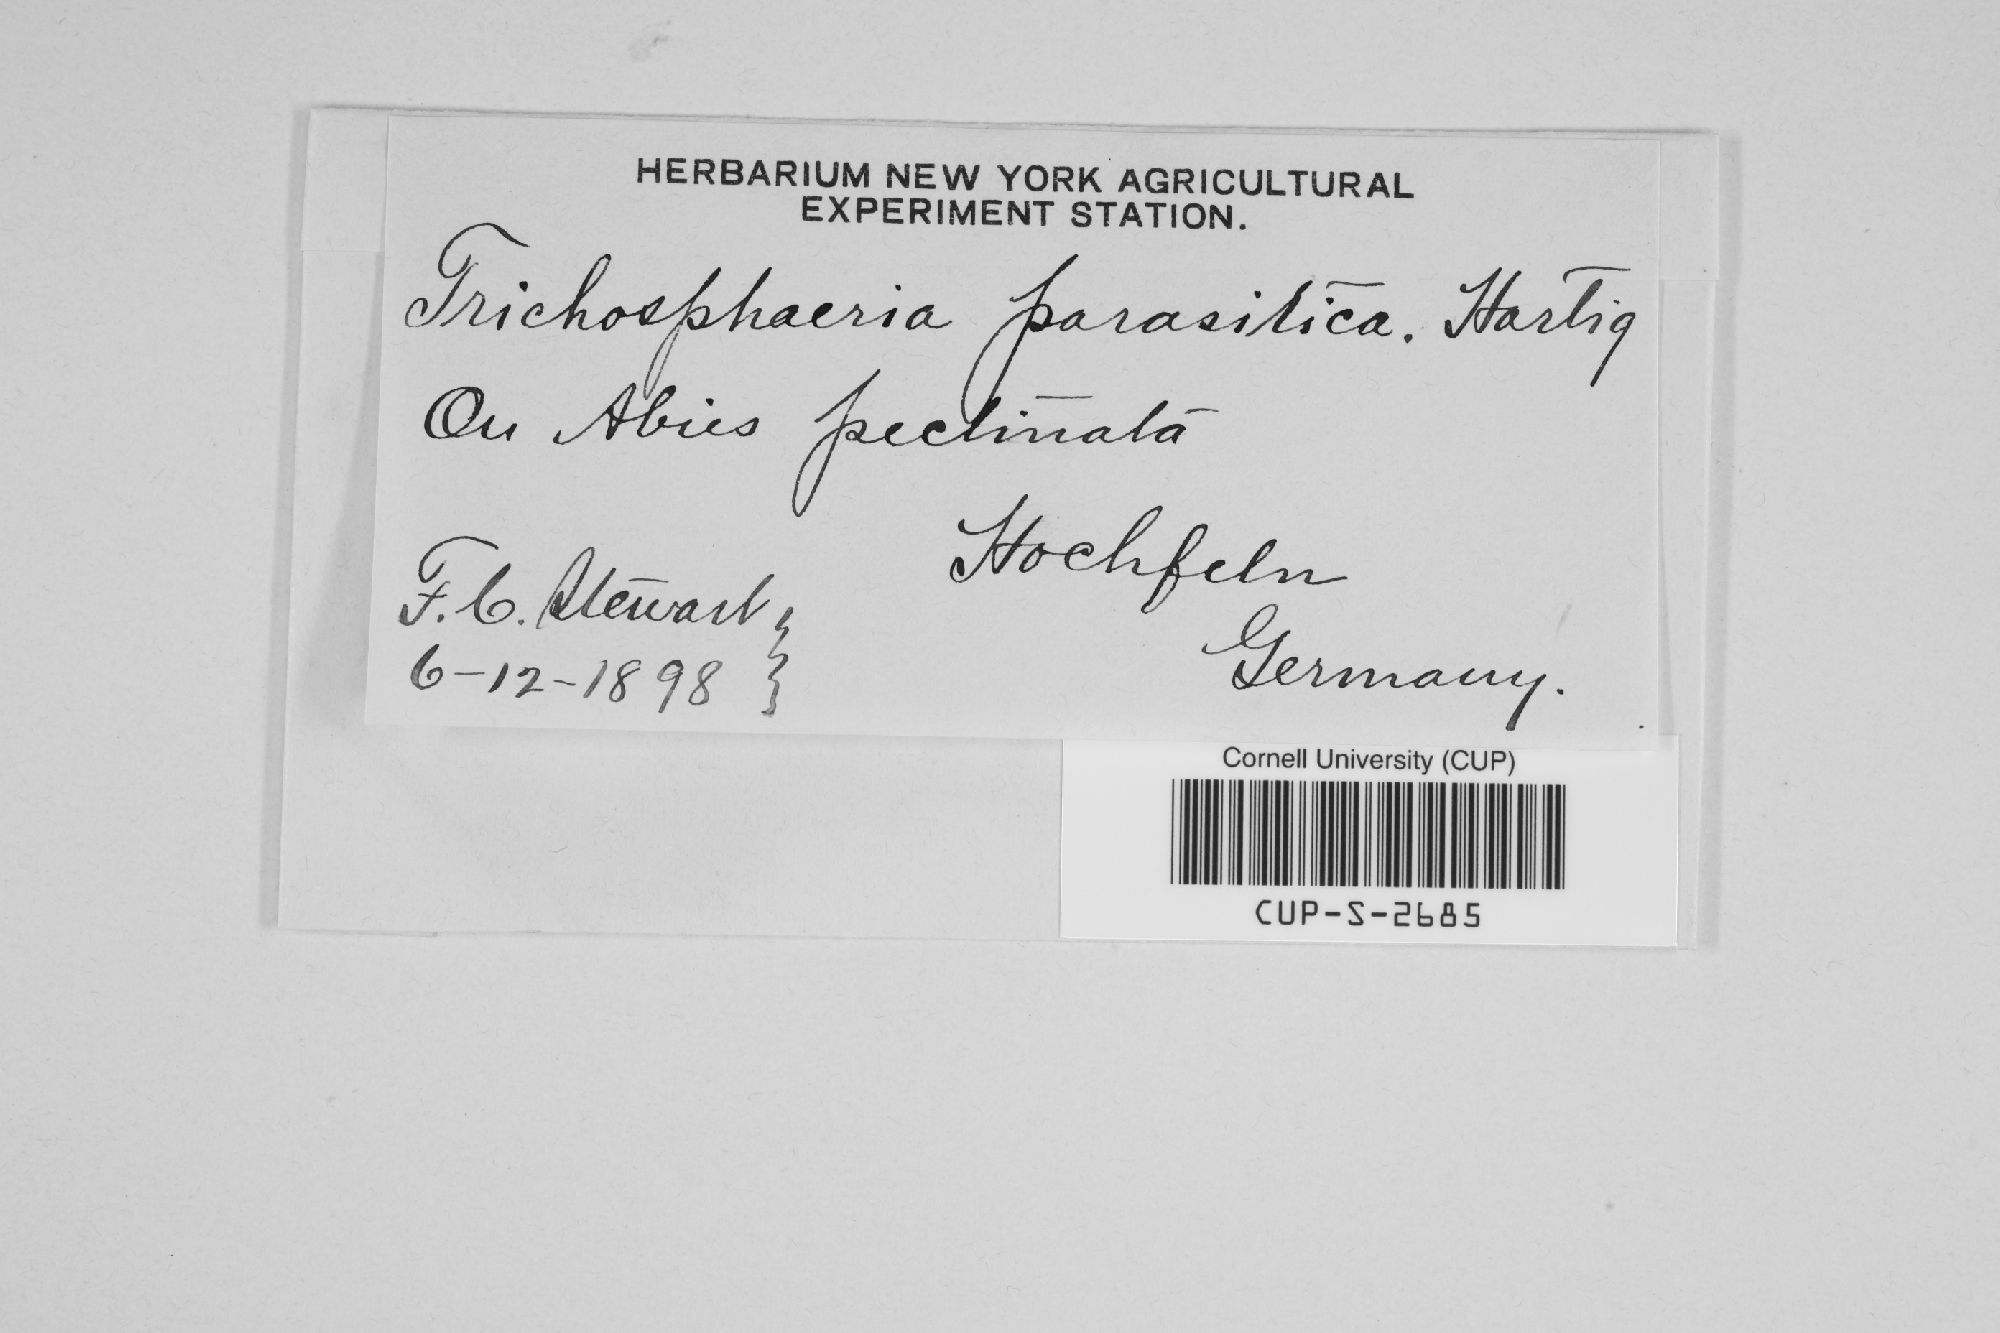 HERBARIUM NEW YORK AGRICULTURAL
EXPERIMENT STATION.
Trichosphaeria parasitica. Hartig
On Abies pectinata
Hochfeln
Germany.
F. C. Stewart
6-12-1898
Cornell University (CUP)
CUP-S-2685